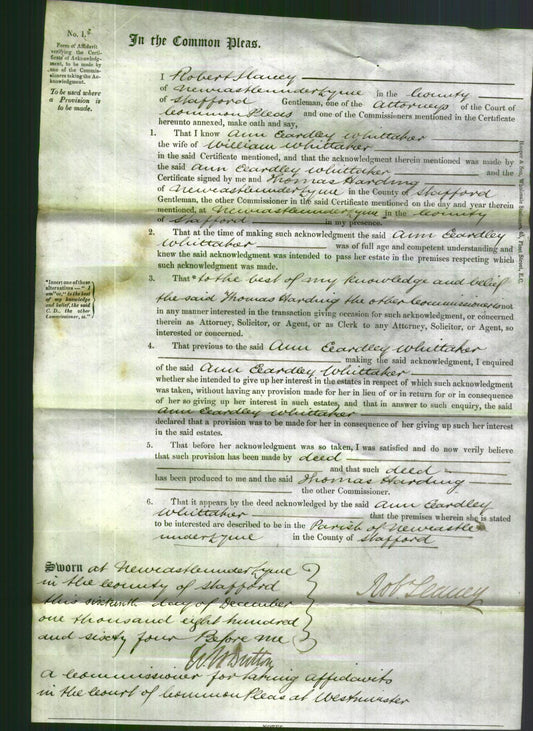 No. 1.
In the Common Pleas.
Form of Affidavit
verifying the Certi-
ficate of Acknowledg-
ment, to be made by
one of the Commis-
sioners taking the Ac-
knowledgment.
To be used where
a Provision is
to be made.
I Robert
of Newcastleunder Lyme in the County
of Stafford Gentleman, one of the Attorneys of the Court of
Common Pleas and one of the Commissioners mentioned in the Certificate
hereunto annexed, make oath and say,
1. That I know Ann Eardley Whittaker
the wife of William Whittaker
in the said Certificate mentioned, and that the acknowledgment therein mentioned was made by
the said Ann Eardley Whittaker and the
Certificate signed by me and Thomas Harding
of Newcastleunder Lyme in the County of Stafford
Gentleman, the other Commissioner in the said Certificate mentioned on the day and year therein
mentioned, at Newcastleunder Lyme in the County
of Stafford in my presence.
2. That at the time of making such acknowledgment the said Ann Eardley
Whittaker was of full age and competent understanding and
knew the said acknowledgment was intended to pass her estate in the premises respecting which
such acknowledgment was made.
*Insert one of these
alterations—"I
am" or, "to the best
of my knowledge
and belief, the said
C. D., the other
Commissioner, is."
3. That *to the best of my knowledge and belief
the said Thomas Harding the other Commissioner is not
in any manner interested in the transaction giving occasion for such acknowledgment, or concerned
therein as Attorney, Solicitor, or Agent, or as Clerk to any Attorney, Solicitor, or Agent, so
interested or concerned.
4. That previous to the said Ann Eardley Whittaker
making the said acknowledgment, I enquired
of the said Ann Eardley Whittaker
whether she intended to give up her interest in the estates in respect of which such acknowledgment
was taken, without having any provision made for her in lieu of or in return for or in consequence
of her so giving up her interest in such estates, and that in answer to such enquiry, the said
Ann Eardley Whittaker
declared that a provision was to be made for her in consequence of her giving up such her interest
in the said estates.
5. That before her acknowledgment was so taken, I was satisfied and do now verily believe
that such provision has been made by deed
and that such deed
has been produced to me and the said Thomas Harding
the other Commissioner.
6. That it appears by the deed acknowledged by the said Ann Eardley
Whittaker that the premises wherein she is stated
to be interested are described to be in the Parish of Newcastle
under Lyme in the County of Stafford
Sworn at Newcastleunder Lyme
in the County of Stafford
this sixteenth day of December
one thousand eight hundred
and sixty four Before me
Dutton
A Commissioner for taking Affidavits
in the Court of Common Pleas at Westminster